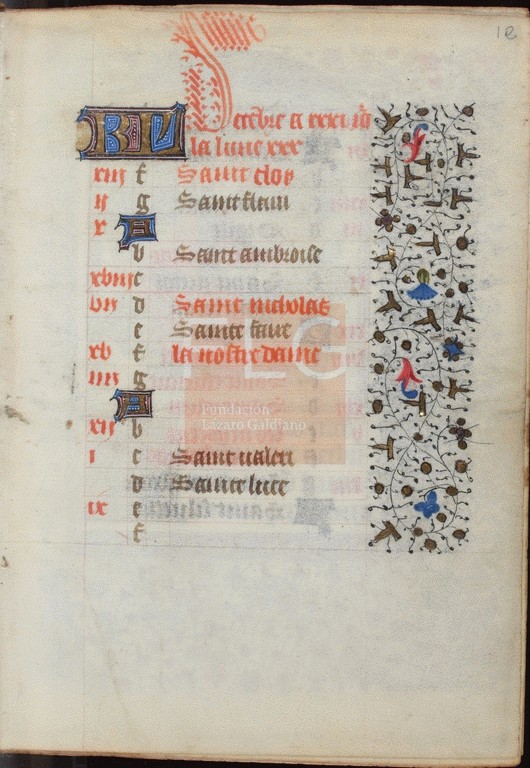 12
KL Decẽbre a xxxi io᷒
la lune xxx
xiij f Saint eloy
ij g Saint flaui
x A
b Saint ambroise
xviij c
vij d Saint nicholas
e Sainte fare
xv f la nostre dame
iiij g
A
xij b
i c Saint valeri
d Sainte luce
ix e
f
Fundación
Lázaro Galdiano